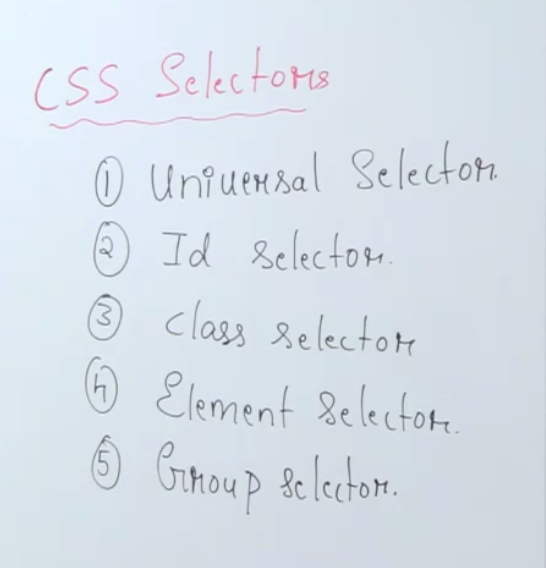 CSS Selectors
① Universal Selector.
② Id selector.
③ class selector
④ Element selector.
⑤ Group selector.